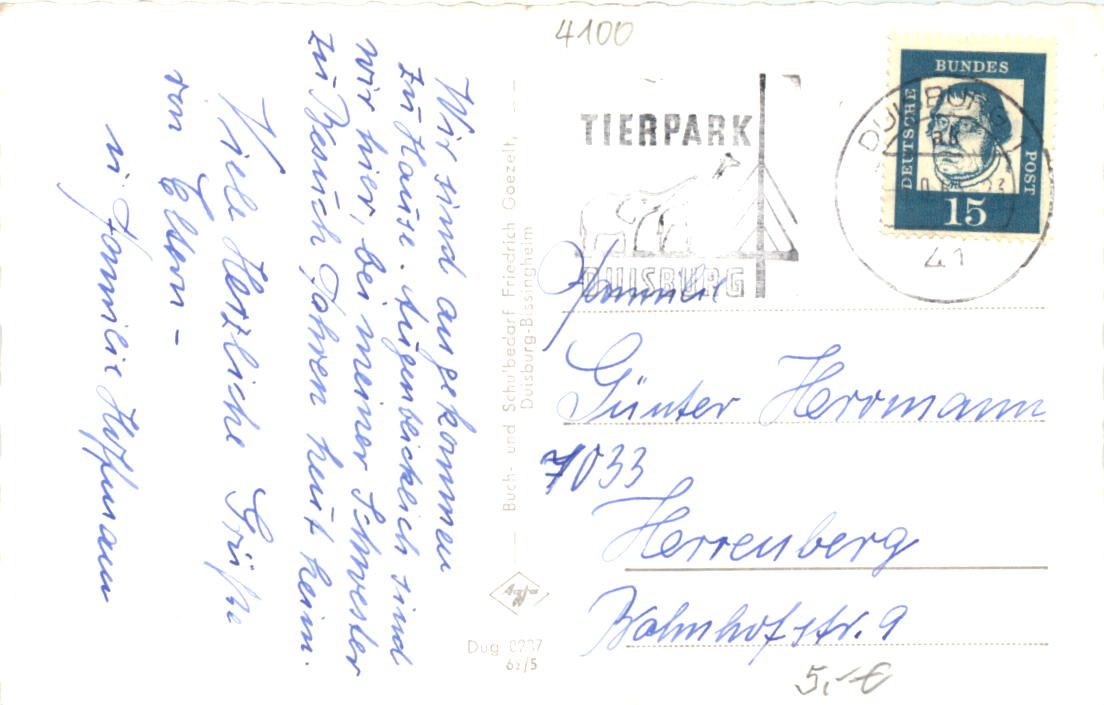 Wir sind angekommen
zu Hause. Augenblicklich sind
wir hier, bei meiner Schwester
zu Besuch, fahren heut heim.
Viele Herzliche Grüße
von Eltern –
Familie Hoffmann
Buch- und Schulbedarf Friedrich Goezelt,
Duisburg-Bissingheim
Agfa
Dug 0207
62/5
4100
TIERPARK
DUISBURG
DUISBURG
41
DEUTSCHE
BUNDES
POST
15
Familie
Günter Herrmann
7033
Herrenberg
Bahnhofstr. 9
5,-€